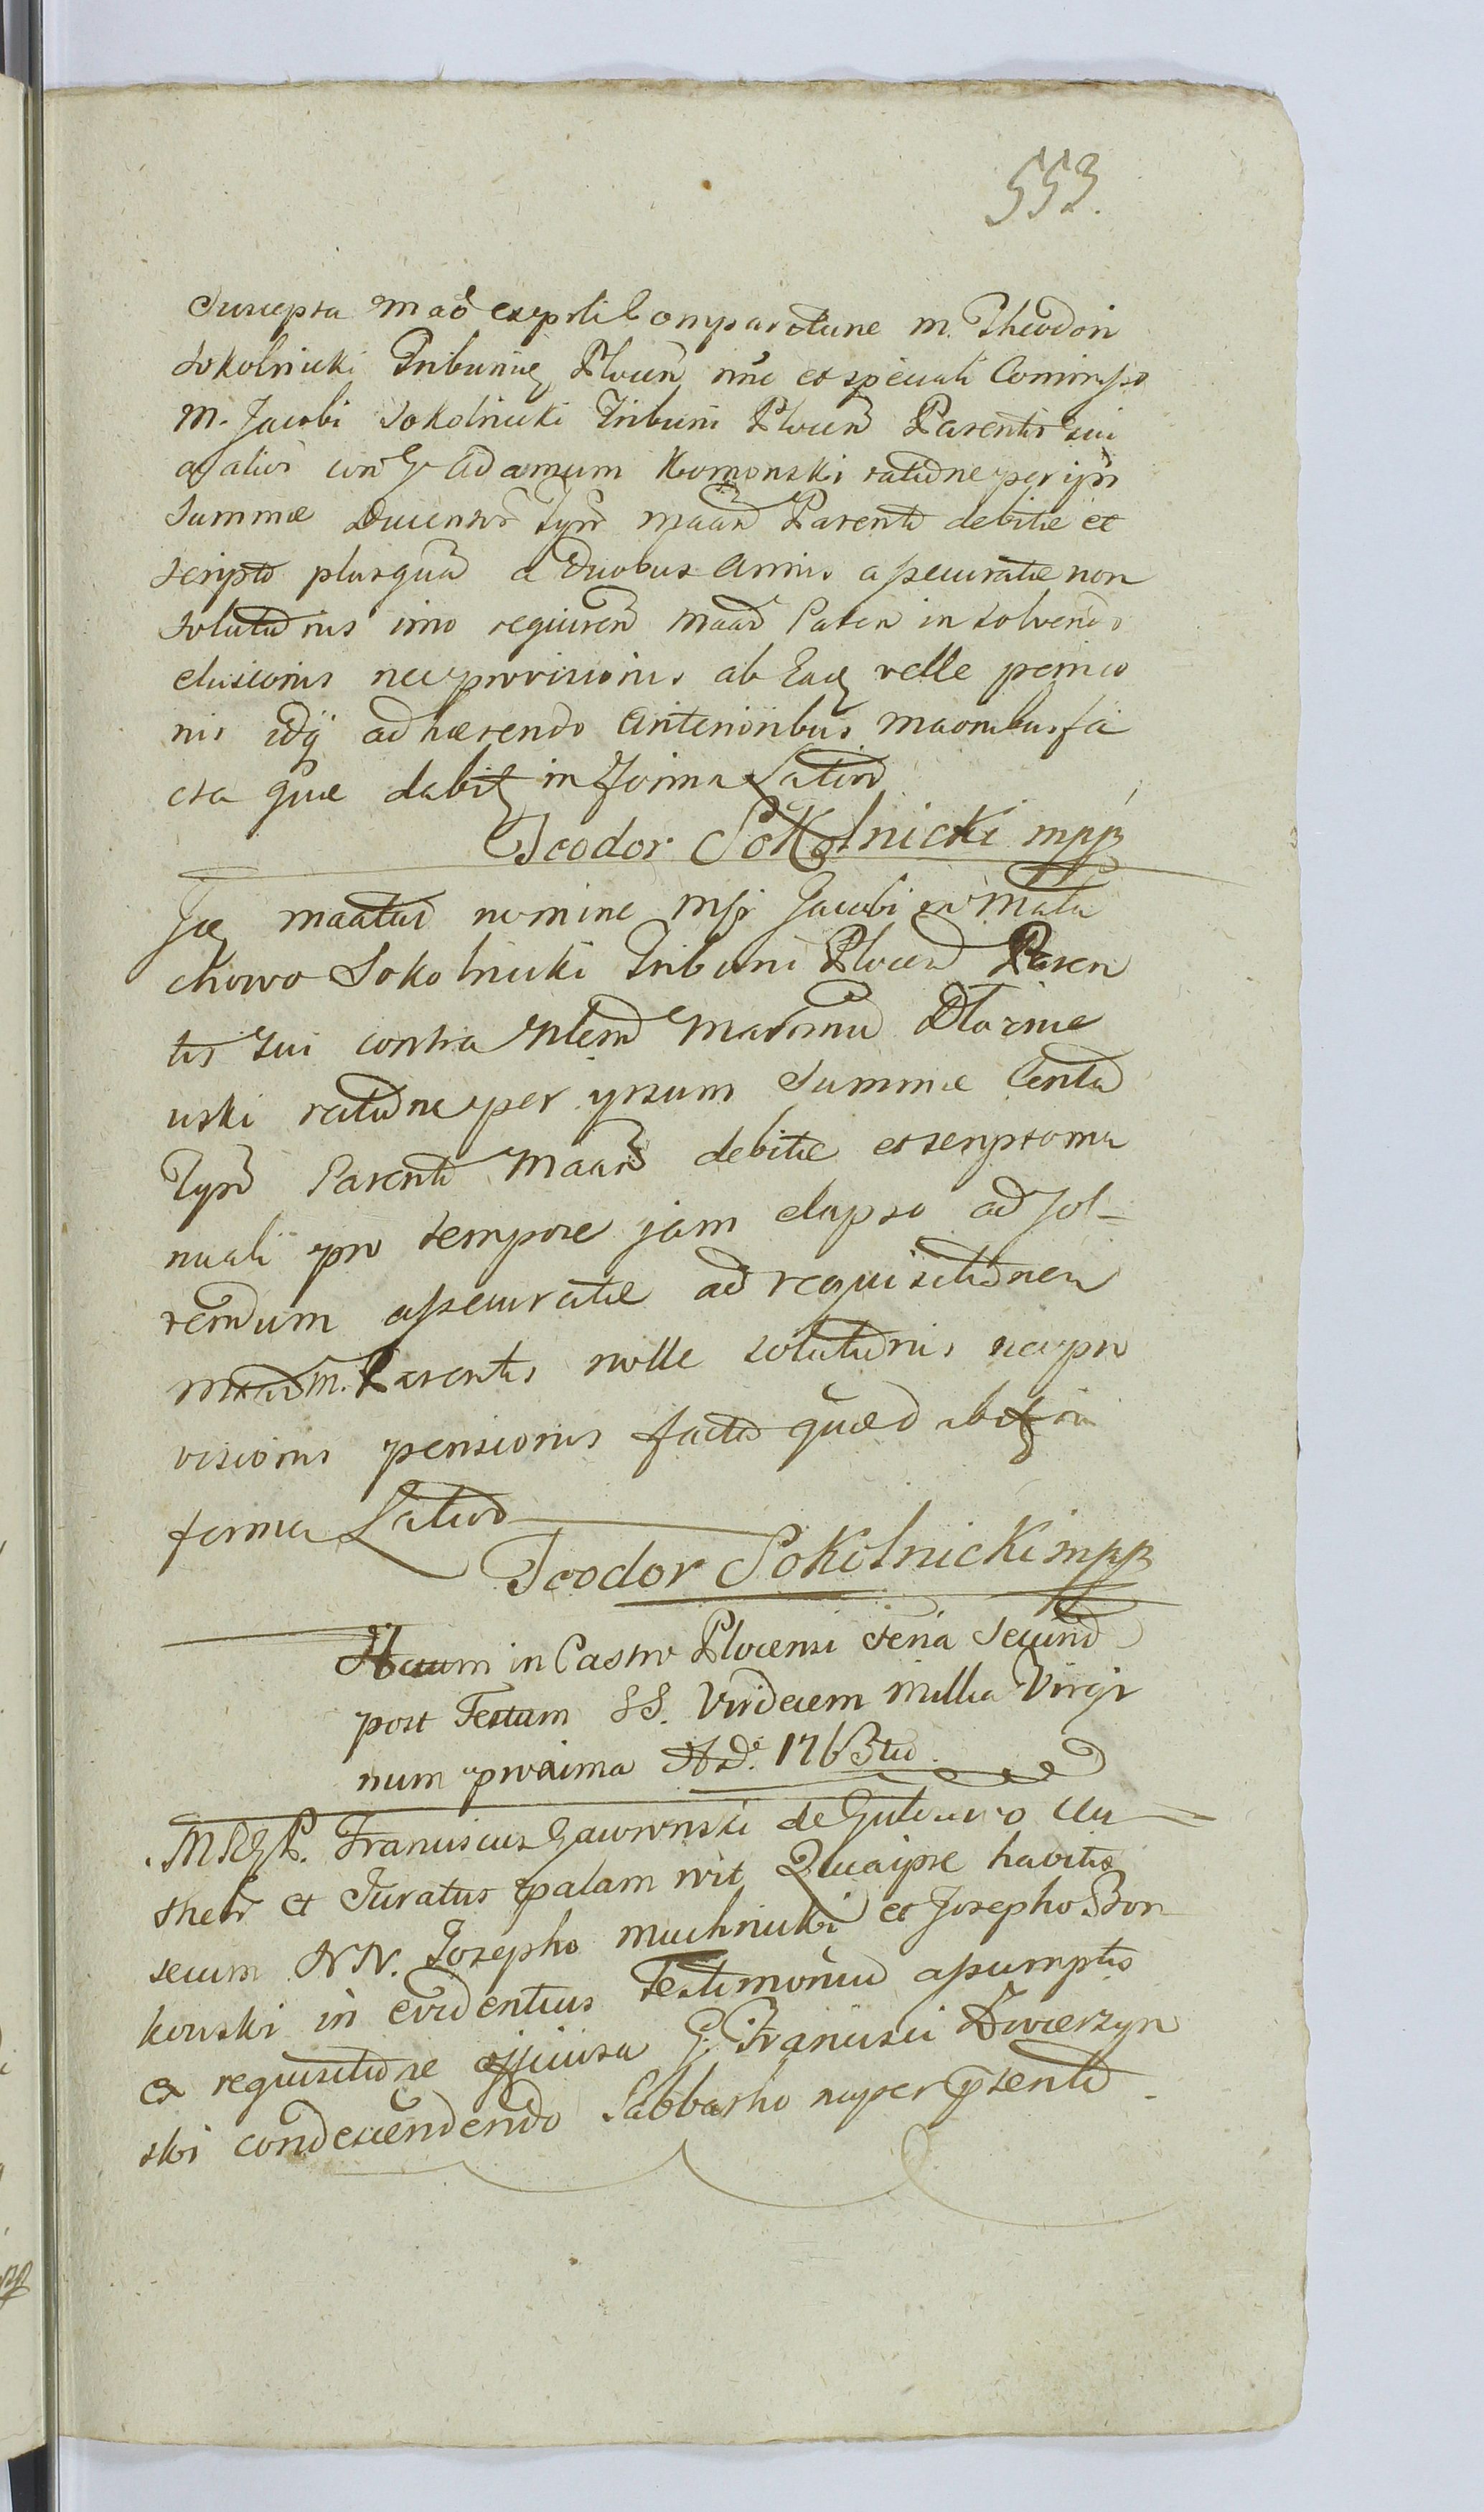 553.
Suscepta Mao ex psli Comparitune M. Theodori
Sokolnicki Tribunig Plocen nne et speciali Commisso
M. Jacobi Sokolnicki Tribuni Plocen Parentis sui
ag alios con G Adamum Komonski ratione per ipm
Summæ Ducentor Tynf maan Parenti debitæ et
scripto plusquã a duobus Annis assecuratæ non
solutionis imo requiren maan Paren in solvendo
elusionis nec provisionis ab Ead velle pensio
nis idq adhærendo Anterioribus Maonibus fa
cta quæ dabit in Forma Latiori
Teodor Sokolnicki mpp
Id maatur nomine Mfi Jacobi in Mala
chowo Sokolnicki Tribuni Plocen Paren
tis sui contra Nlem Maximu
uski ratione per ipsum Summæ Centu
Tynf Parenti Maan debitæ et scripto ma
nuali pro tempore jam elapso ad sol-
vendum assecuratæ ad requisitionem
M. Parentis nolle solutionis nec pro
visionis pensionis facta quæ dabit in
forma Latiori
Teodor Sokolnicki mpp
Actum in Castro Plocensi Feria Secund
post Festum SS. Undecem Millia Virgi
num proxima Ad. 1763tio
Franciscus Gawronski de Gulczewo Au
then et Juratus palam rvit Quia ipse habitis
secum NN. Josepho Muchnicki et Josepho Bon
kowski in evidentius Testimoniu assumptis
ex requisitione officiosa G. Francisci Zwierzyn
ski condescendendo Sabbatho nuper psenti